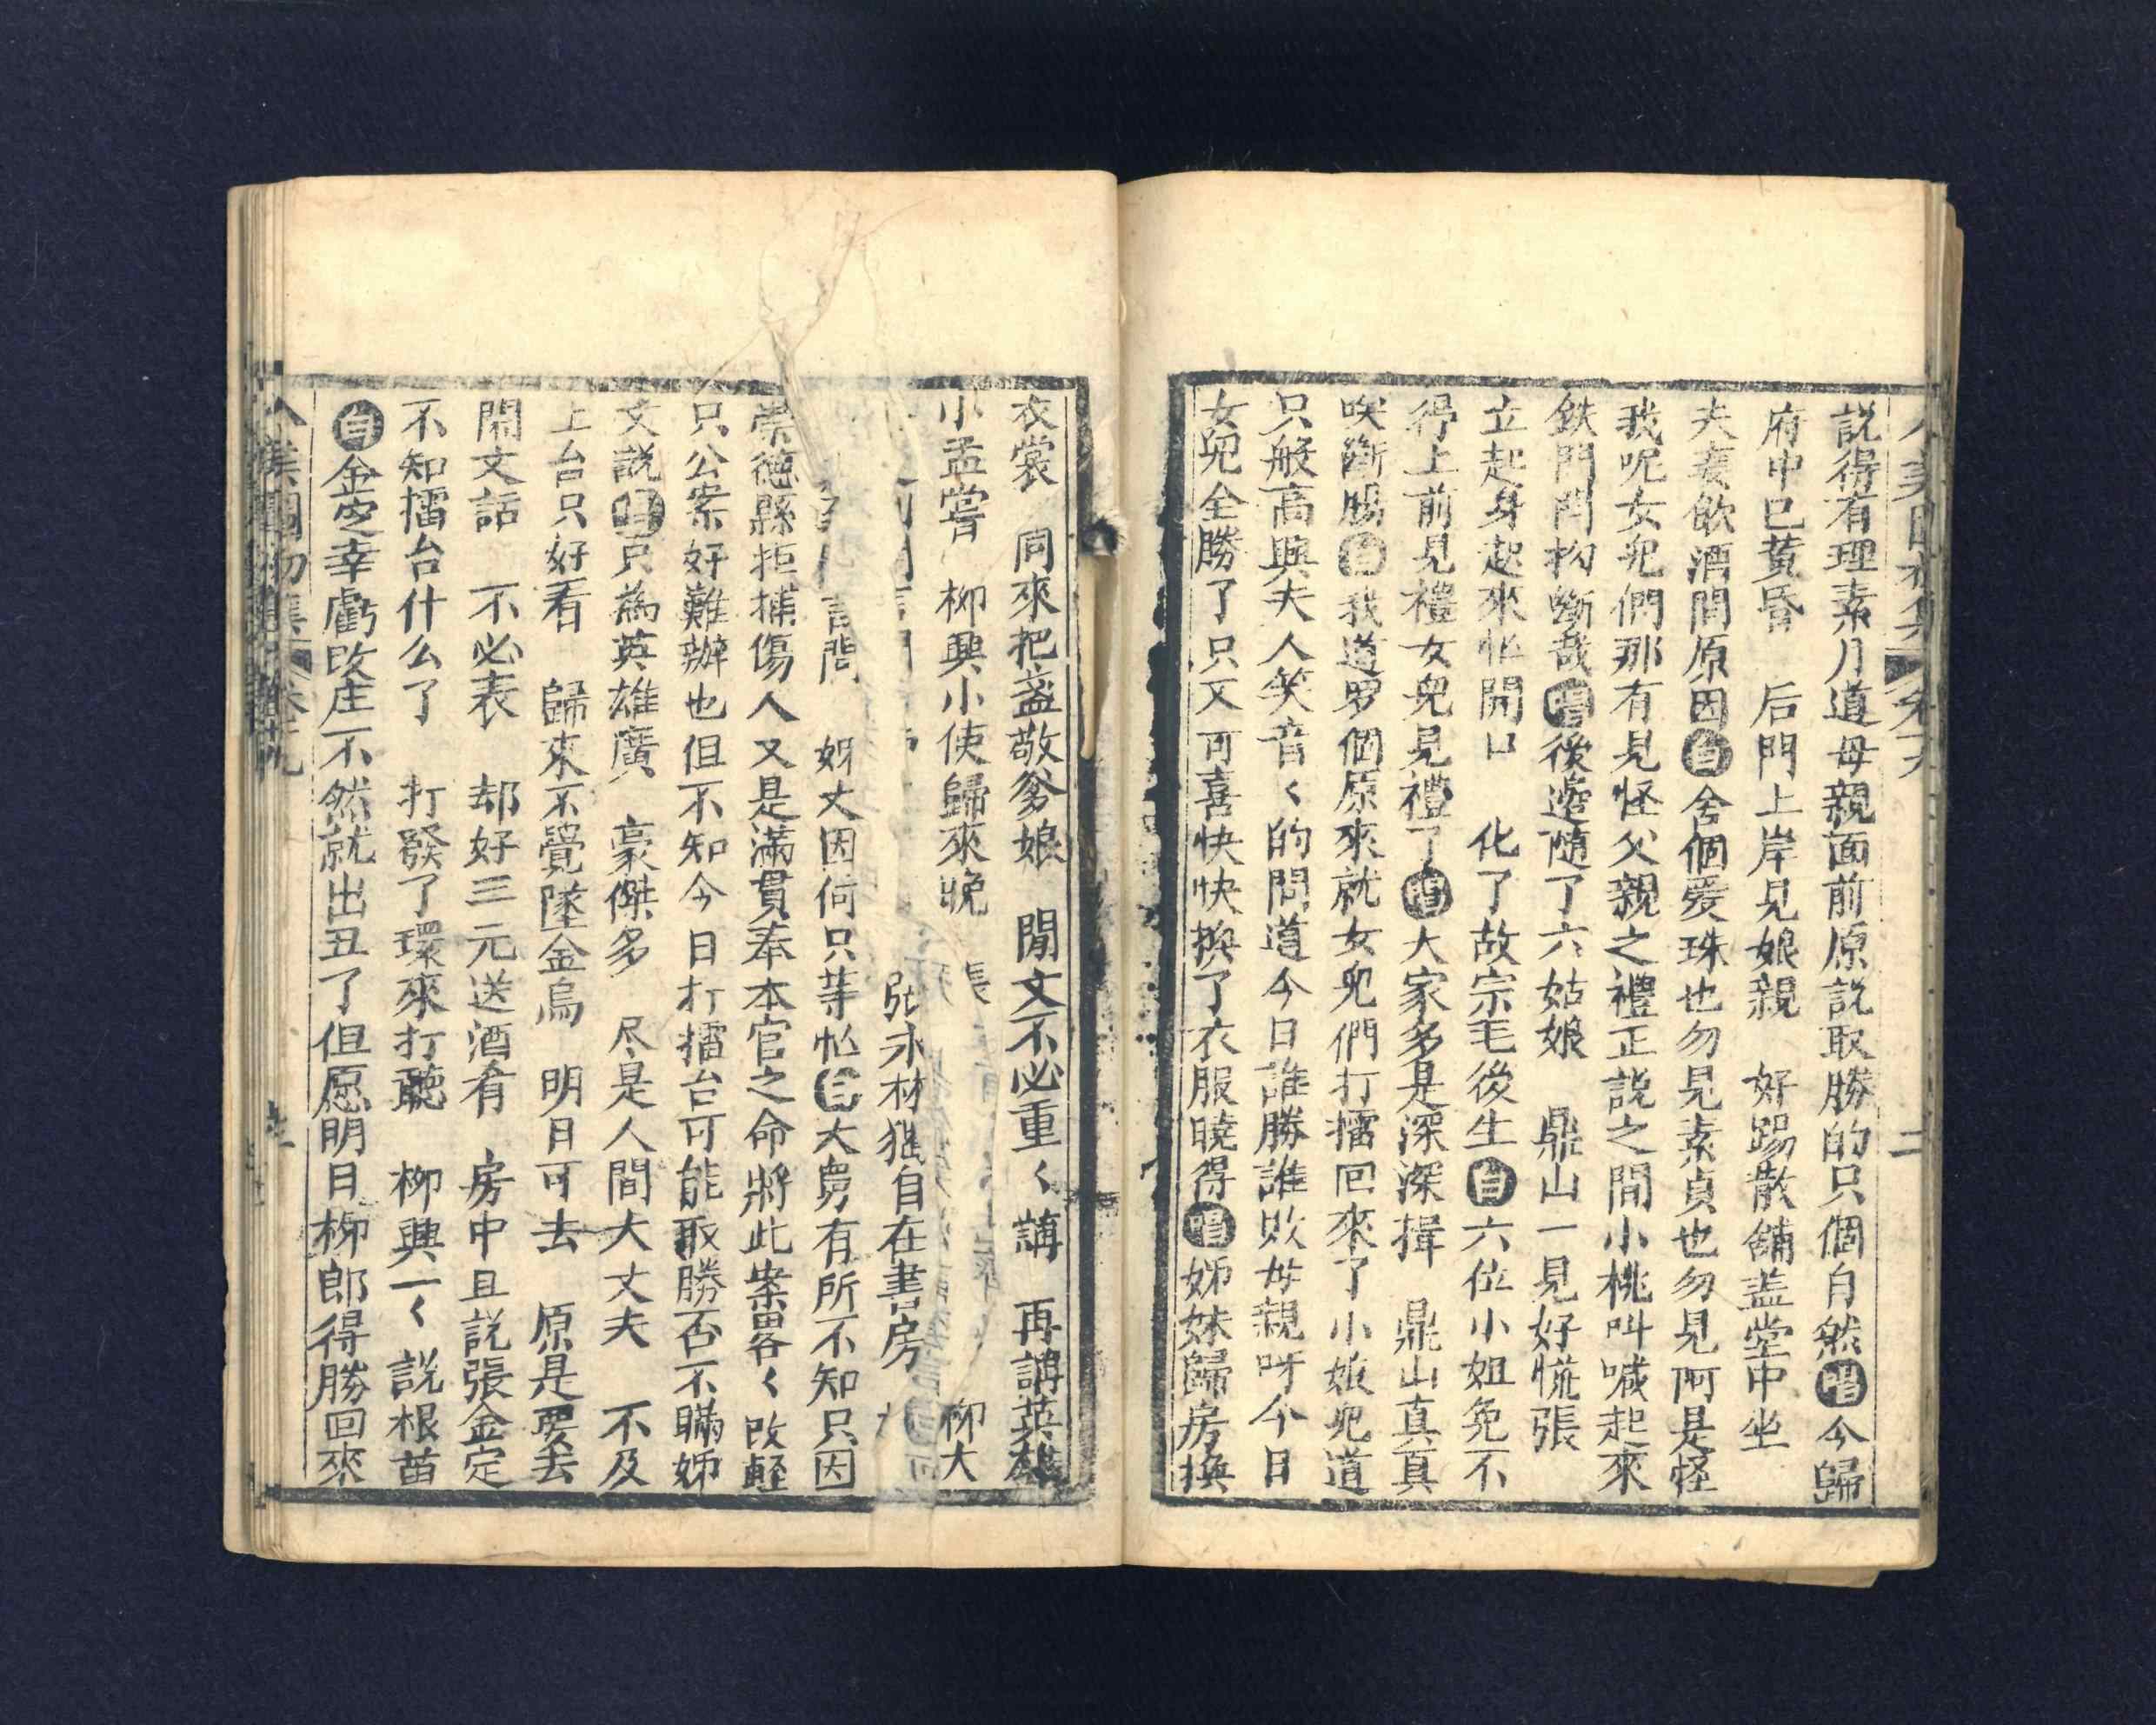 說得有理素月道母親面前原説取勝的只個自然唱今歸
府中已黄昏 后門上岸見娘親 好踢散舖盖堂中坐
夫妻飲酒間原因白舍個爱珠也勿見素貞也勿見阿是怪
我呢女兒們那有見怪父親之禮正説之間小桃叫喊起來
鉄門閂抅嘶哉唱後邊随了六姑娘 鼎山一見好慌張
立起身起來忙開口 化了故宗毛後生白六位小姐免不
得上前見禮女兒見禮了唱大家多是深深揖 鼎山真真
唉斷腸白我道罗個原來就女兒們打擂回來了小娘兒道
只般高興夫人笑音く的問道今日誰勝誰敗母親呀今日
女兒全勝了只又可喜快快快换了衣服曉得唱姊妹歸房换
衣裳 同來把盞敬爹娘 閒文不必重く講 再講英雄
小孟嘗 柳興小使歸來晚 柳大
張永材獨自在書房
言問 姊丈因何只等忙白大舅有所不知只因
崇德縣拒捕傷人又是滿貫奉本官之命將此案畧く改輕
只公案好難辦也但不知今日打擂台可能取勝否不瞞姊
文説唱只為英雄廣 豪傑多 尽是人間大丈夫 不及
上台只好看 歸來不覺墜金烏 明日可去 原是要去
閑文話 不必表 却好三元送酒肴 房中且説張金定
不知擂台什么了 打發了環來打聽 柳興一く説根苗
白金定幸虧改庄不然就出丑了但愿明日柳郎得勝回來